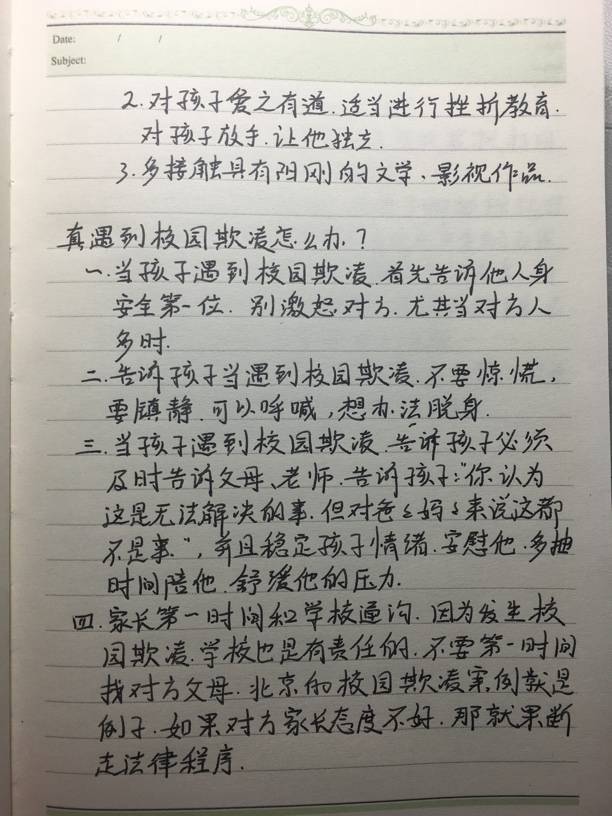 Date: / /
Subject:
2. 对孩子爱之有道.适当进行挫折教育.
对孩子放手.让他独立.
3. 多接触具有阳刚的文学、影视作品.
真遇到校园欺凌怎么办?
一.当孩子遇到校园欺凌.首先告诉他人身
安全第一位.别激怒对方.尤其当对方人
多时.
二.告诉孩子当遇到校园欺凌.不要惊慌,
要镇静.可以呼喊,想办法脱身.
三.当孩子遇到校园欺凌.告诉孩子必须
及时告诉父母、老师.告诉孩子:“你认为
这是无法解决的事.但对爸〻妈〻来说这都
不是事.”,并且稳定孩子情绪.安慰他.多抽
时间陪他.舒缓他的压力.
四.家长第一时间和学校通沟.因为发生校
园欺凌.学校也是有责任的.不要第一时间
找对方父母.北京的校园欺凌案例就是
例子.如果对方家长态度不好.那就果断
走法律程序.